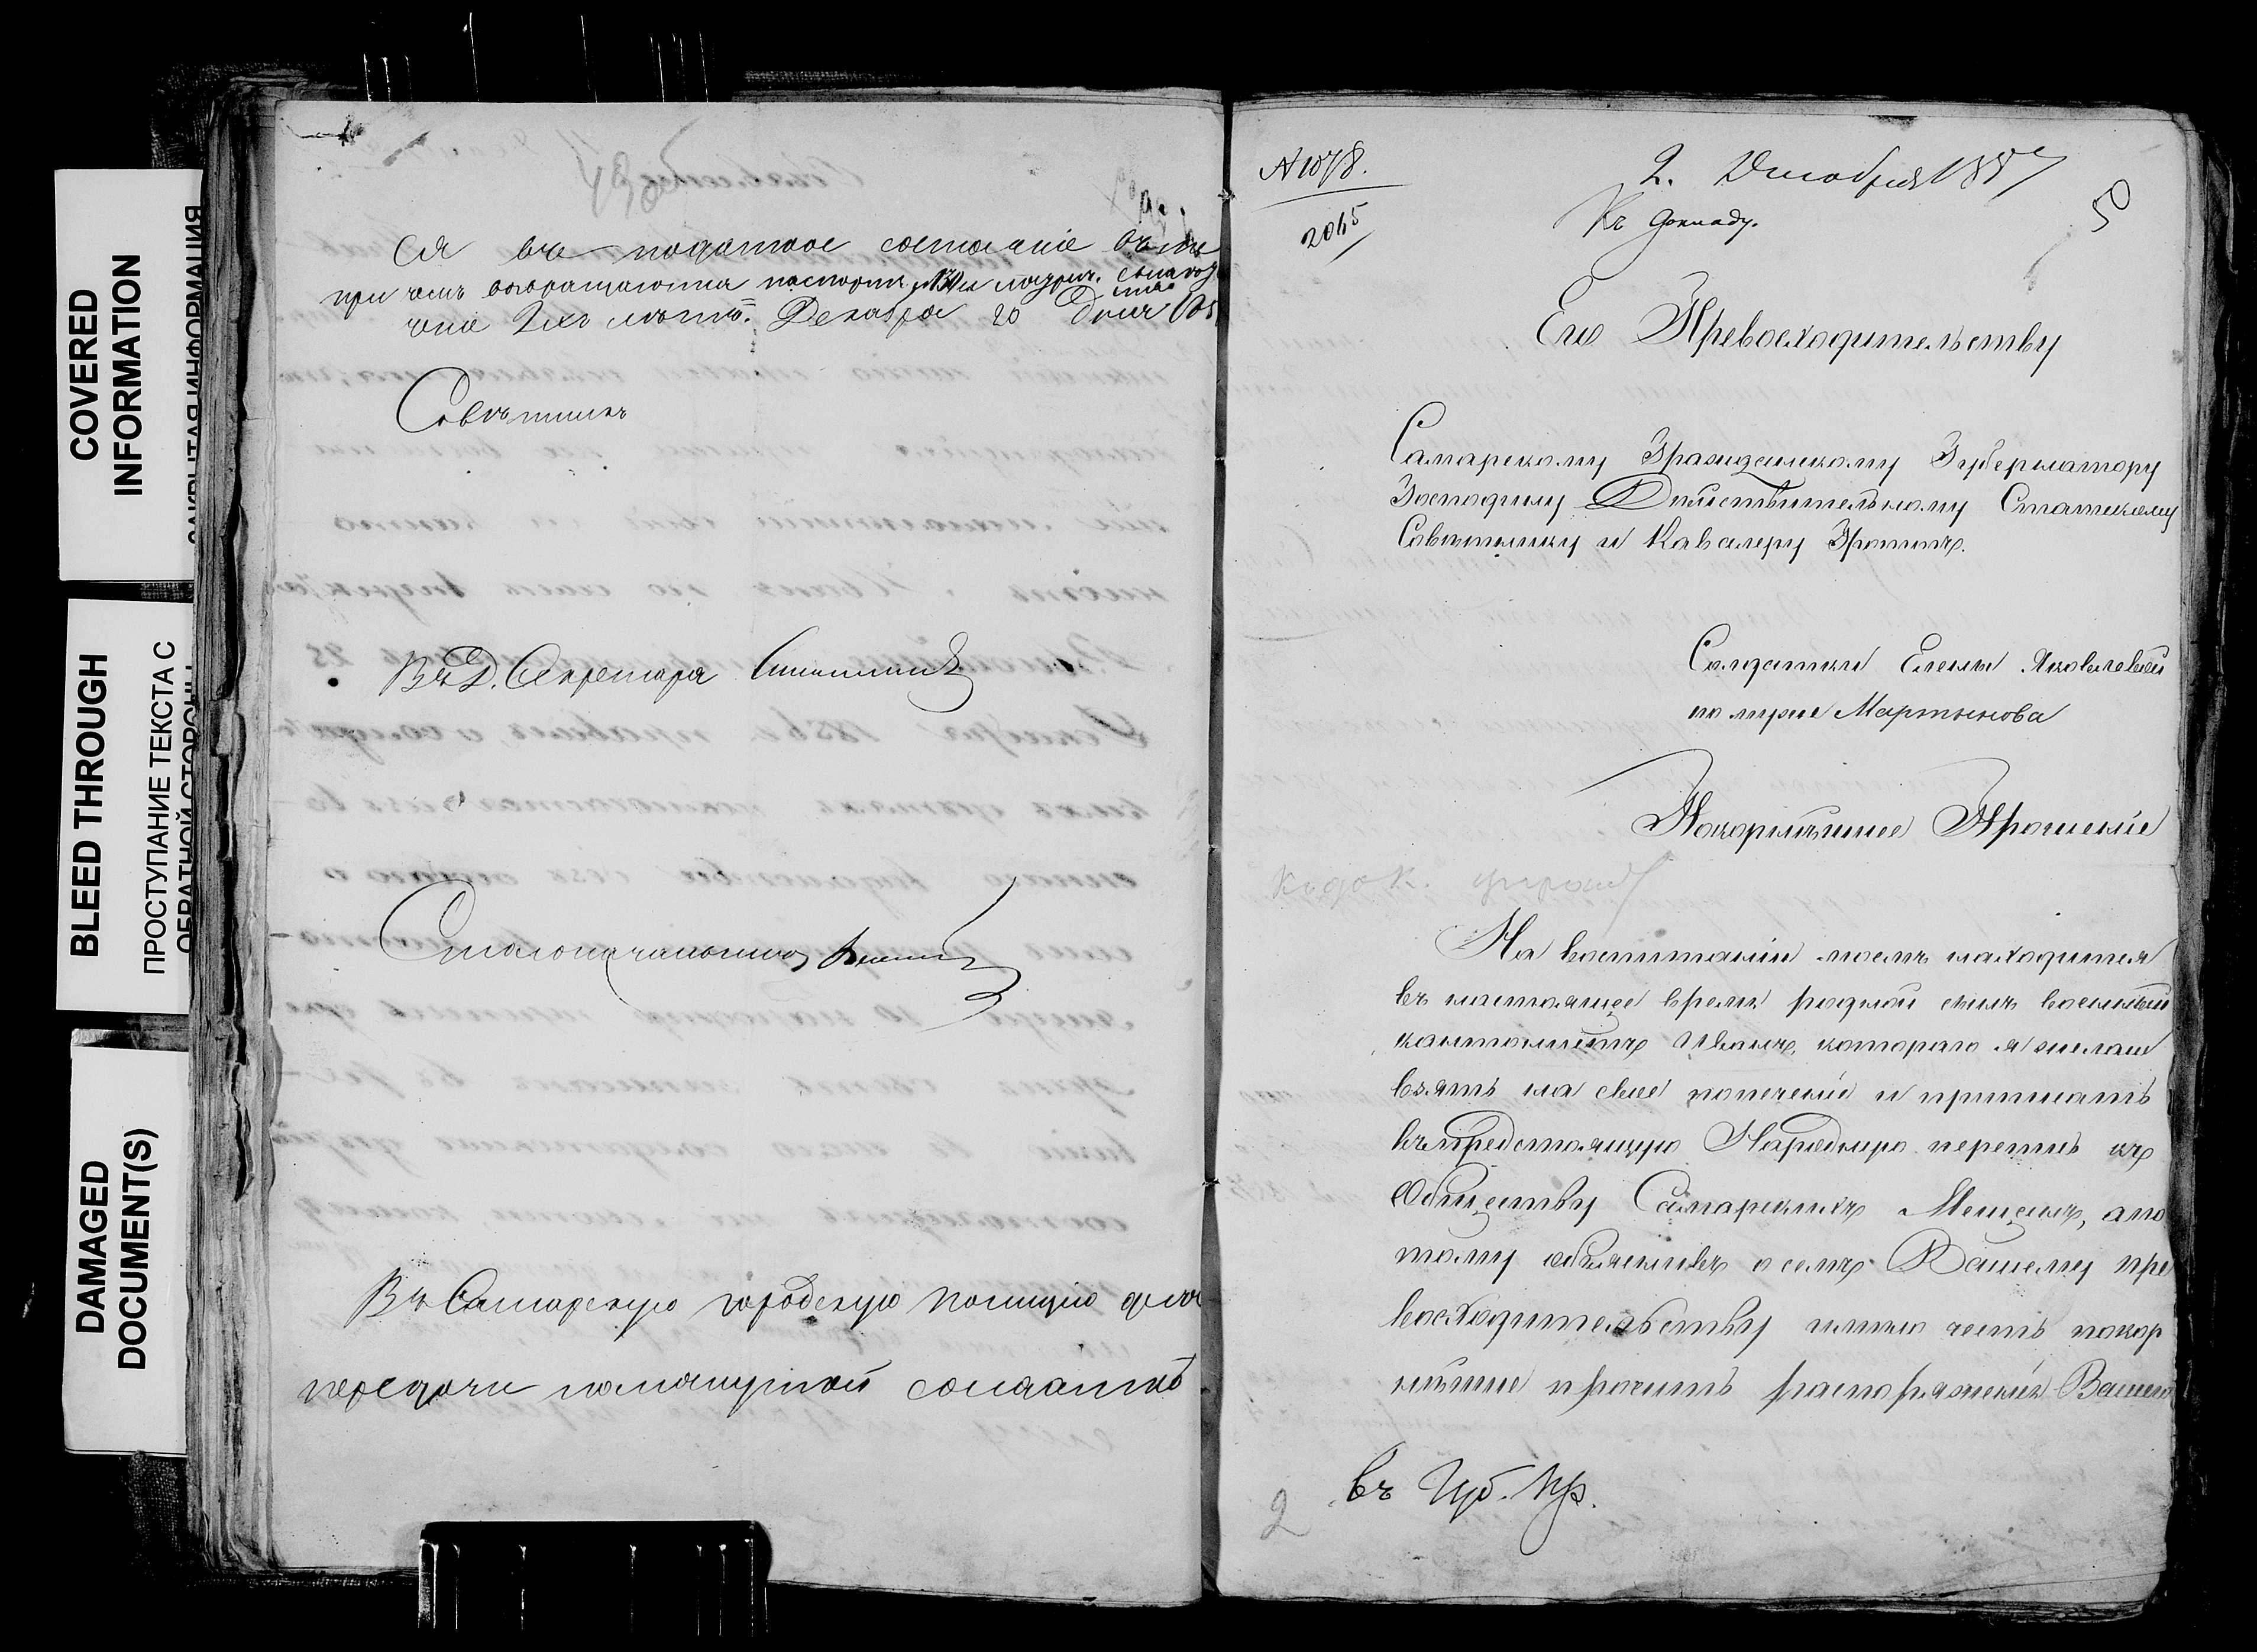 COVERED
INFORMATION
ЗАКРЫТАЯ ИНФОРМАЦИЯ
BLEED THROUGH
ПРОСТУПАНИЕ ТЕКСТА С
ОБРАТНОЙ СТОРОНЫ
DAMAGED
DOCUMENT(S)
ся въ податное состояніе
при чемъ возвращается паспортъ
Декабря 20 дня
Совѣтникъ
В. Д. Секретаря
Столоначальникъ
Въ Самарскую городскую полицію для
передачи солдатке
№ 1078.
2045
2. Декабря 1857
Къ докладу.
5
Его Превосходительству
Самарскому Гражданскому Губернатору
Господину Дѣйствительному Статскому
Совѣтнику и Кавалеру Гроттъ.
Солдатки Елены Яковлевой
по мужѣ Мартынова
Покорнѣйшее Прошеніе
На воспитаніи моемъ находится
въ настоящее время родной сынъ военный
кантонистъ Иванъ, котораго я желаю
взять на свое попеченіе и приписать
въ предстоящую Народную перепись къ
Обществу Самарскихъ Мещанъ, а по
тому объяснивъ о семъ Вашему пре
восходительству имѣю честь покор
нѣйше просить распоряженія Вашего
въ Губ. Пр.
2